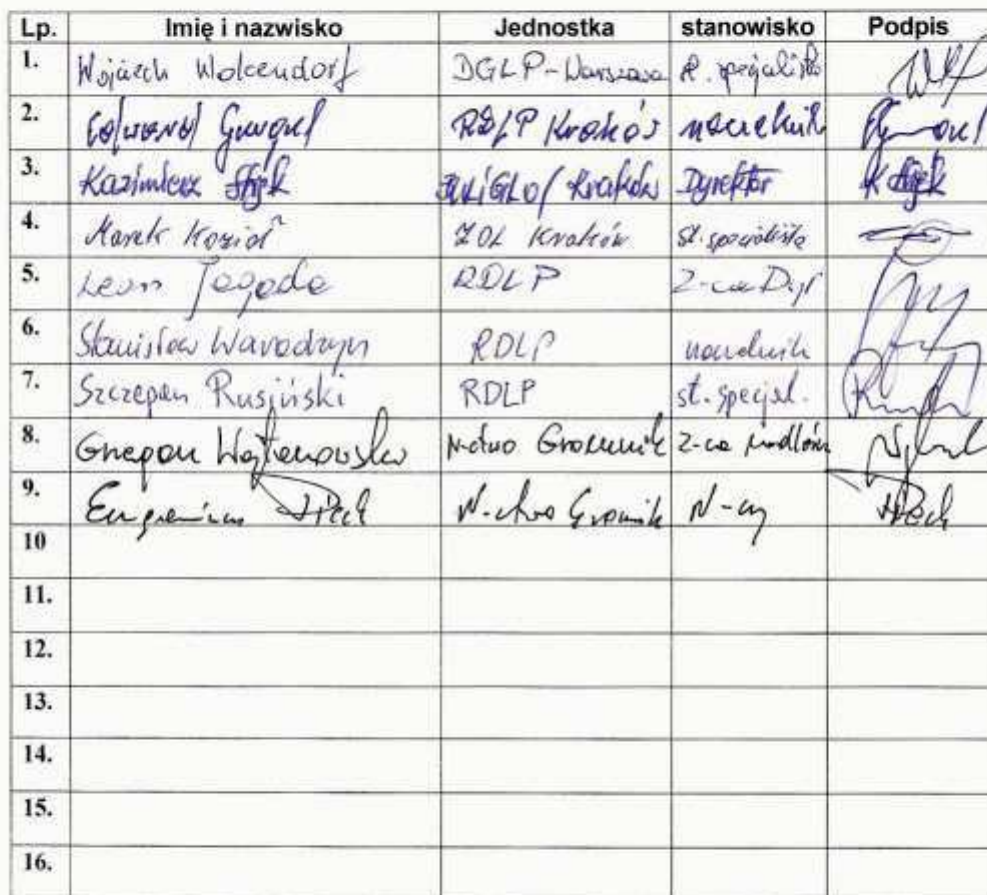 Lp. Imię i nazwisko Jednostka stanowisko Podpis
1. Wojciech Wolcendorf DGLP-Warszawa st. specjalista
2. Edward RDLP Kraków naczelnik
3. Kazimierz Kraków Dyrektor
4. Marek Kozioł ZOL Kraków st. specjalista
5. Leon Jagoda RDLP Z-ca Dyr
6. Stanisław Wawodzyn RDLP naczelnik
7. Szczepan Rusiński RDLP st. specjal.
8. Grzegorz Wojtanowski N-ctwo Gromnik Z-ca
9. Eugeniusz Piech N-ctwo Gromnik N-cy
10
11.
12.
13.
14.
15.
16.